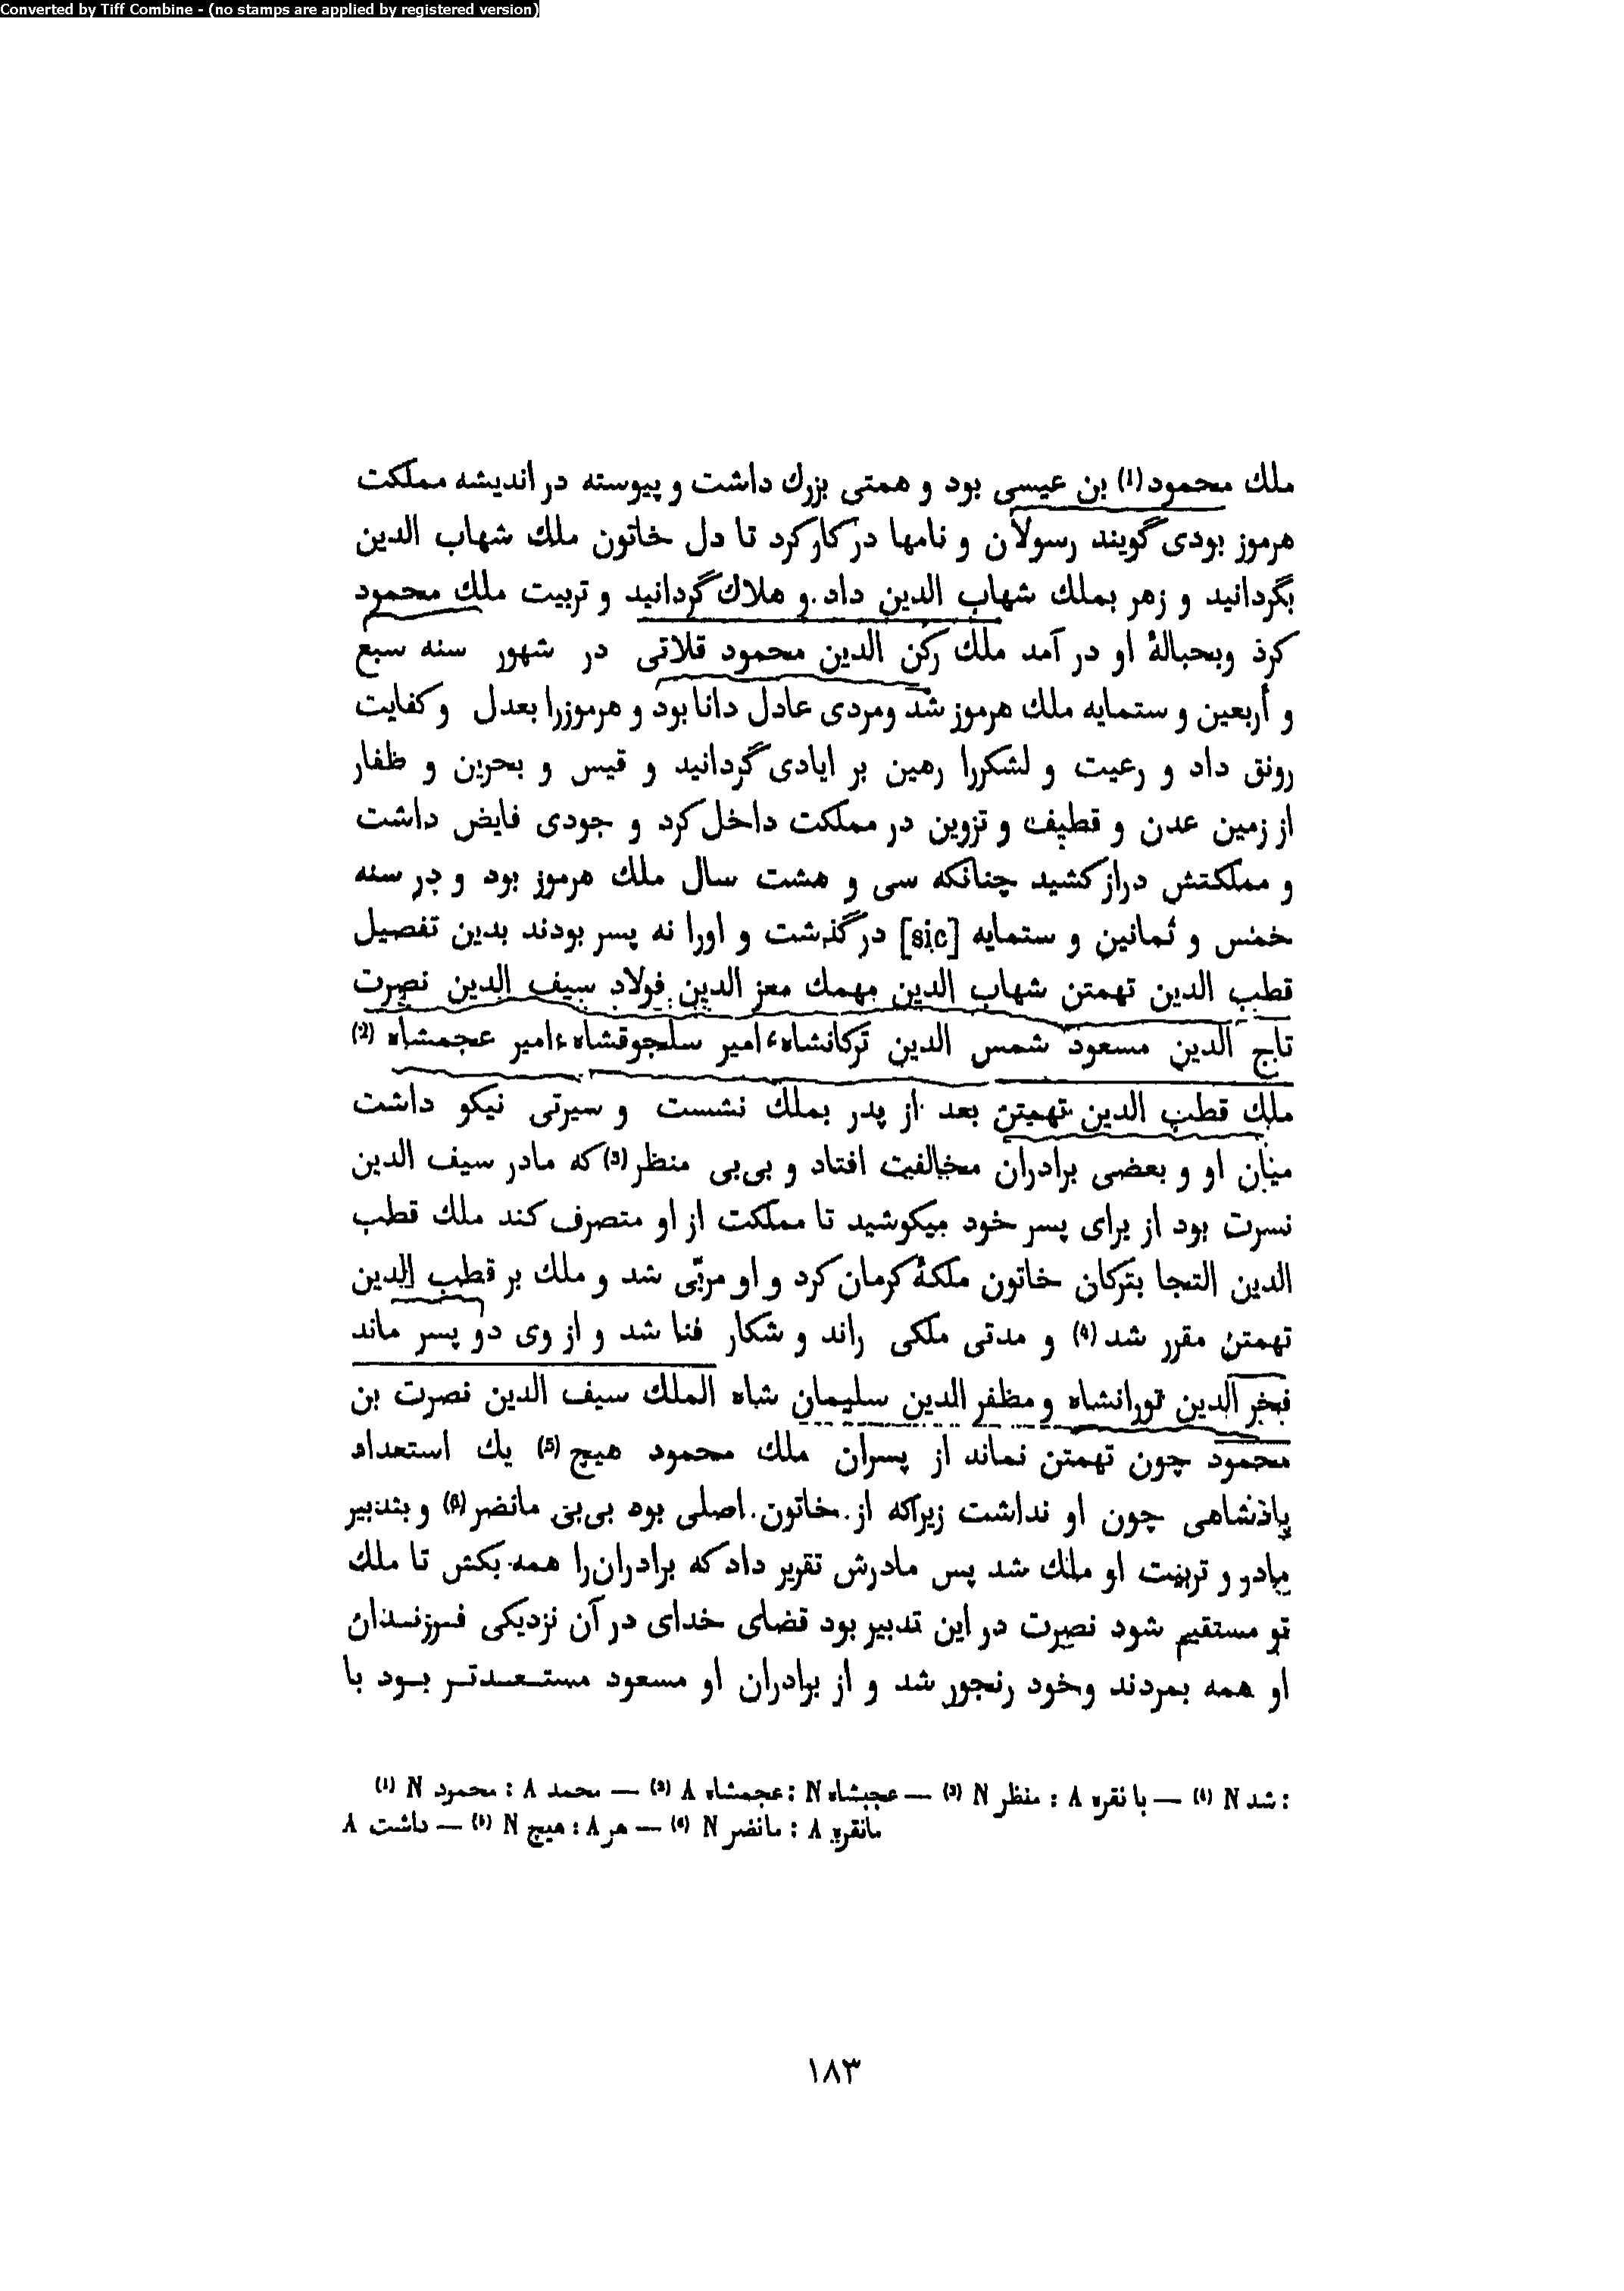 Converted by Tiff Combine - (no stamps are applied by registered version)
ملك محمود(1) بن عیسی بود و همتی بزرك داشت و پیوسته در اندیشه مملكت
هرموز بودی گویند رسولان و نامها در كار كرد تا دل خاتون ملك شهاب الدین
بگردانید و زهر بملك شهاب الدین داد و هلاك گردانید و تربیت ملك محمود
كرذ وبحبالهٔ او در آمد ملك ركن الدین محمود قلاتی در شهور سنه سبع
و أربعین و ستمایه ملك هرموز شد ومردی عادل دانا بود و هرموزرا بعدل و كفایت
رونق داد و رعیت و لشكررا رهین بر ایادی گردانید و قیس و بحرین و ظفار
از زمین عدن و قطیف و تزوین در مملكت داخل كرد و جودی فایض داشت
و مملكتش دراز كشید چنانكه سی و هشت سال ملك هرموز بود و در سنه
خمس و ثمانین و ستمایه [sic] در گذشت و اورا نه پسر بودند بدین تفصیل
قطب الدین تهمتن شهاب الدین مهمك معز الدین فولاد سیف الدین نصرت
تاج الدین مسعود شمس الدین تركانشاه، امیر سلجوقشاه، امیر عجمشاه (2)
ملك قطب الدین تهمتن بعد از پدر بملك نشست و سیرتی نیكو داشت
میان او و بعضی برادران مخالفت افتاد و بی‌بی منظر(3) كه مادر سیف الدین
نسرت بود از برای پسر خود میكوشید تا مملكت از او متصرف كند ملك قطب
الدین التجا بتركان خاتون ملكهٔ كرمان كرد و او مربّی شد و ملك بر قطب الدین
تهمتن مقرر شد(4) و مدتی ملكی راند و شكار فنا شد و از وی دو پسر ماند
فخر الدین تورانشاه و مظفر الدین سلیمان شاه الملك سیف الدین نصرت بن
محمود چون تهمتن نماند از پسران ملك محمود هیچ(5) یك استعداد
پاذشاهی چون او نداشت زیراكه از خاتون اصلی بوه بی‌بی مانضر(6) و بتدبیر
مادر و تربیت او ملك شد پس مادرش تقریر داد كه برادران‌را همه بكش تا ملك
تو مستقیم شود نصرت در این تدبیر بود قضای خدای در آن نزدیكی فرزندان
او همه بمردند وخود رنجور شد و از برادران او مسعود مستعدتر بود با
(1) N محمود : A محمد — (2) A عجمشاه : N عجبشاه — (3) N منظر : A با نقره — (4) N شد :
A داشت — (5) N هیچ : A هر — (6) N مانضر : A مانقره
۱۸۳